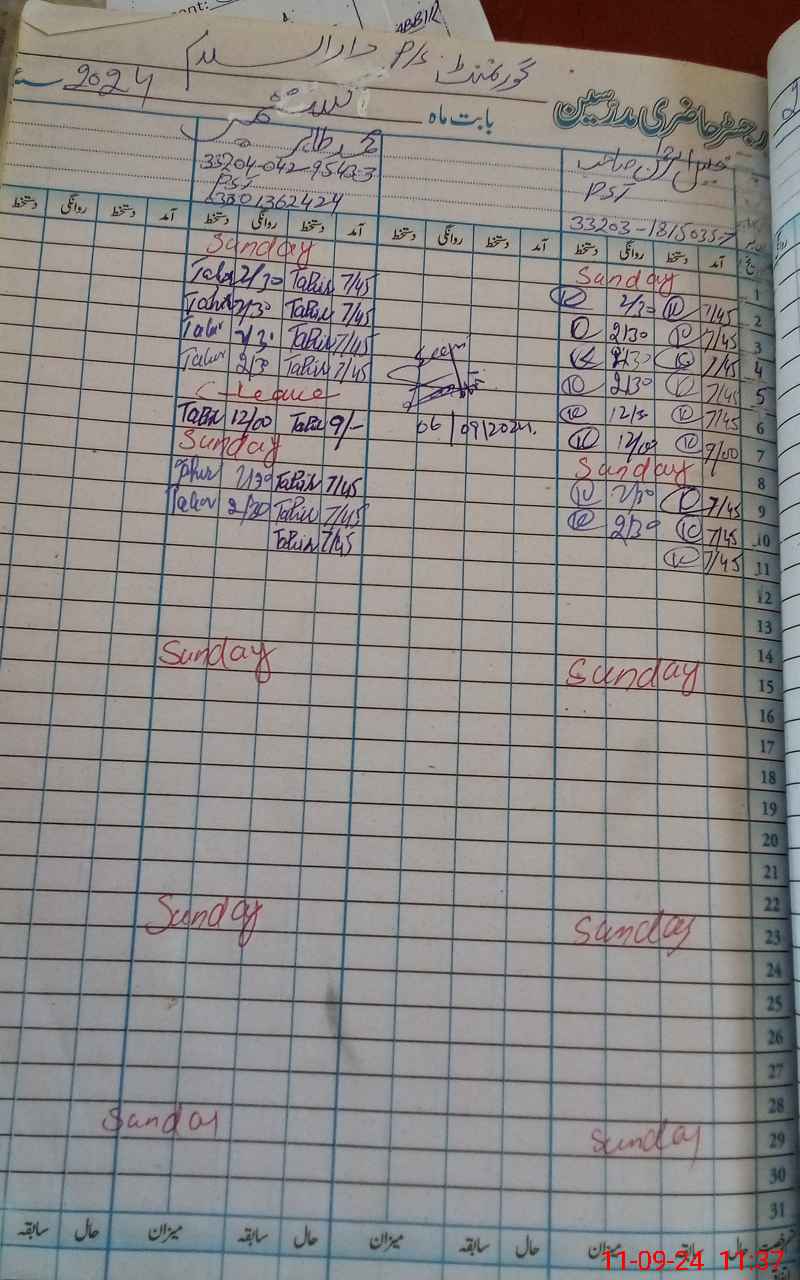 ABBIR
گورنمنٹ P/S دارالسلام
رجسٹر حاضری مدرسین بابت ماه ستمبر 2024
PST
33203-1815035-7
محمد طاہر
33204-042-9543-3
PST
آمد دستخط روانگی دستخط آمد دستخط روانگی دستخط آمد دستخط روانگی دستخط آمد دستخط روانگی دستخط
1 Sunday Sunday
2 7/45 2/30 7/45 Tahir 2/30 Tahir
3 7/45 2/30 7/45 Tahir 2/30 Tahir
4 7/45 2/30 7/45 Tahir 2/30 Tahir
5 7/45 2/30 7/45 Tahir 2/30 Tahir
6 7/45 12/30 06/09/2024. C-Leave
7 9/00 12/00 9/- Tahir 12/00 Tahir
8 Sunday Sunday
9 7/45 2/30 7/45 Tahir 2/30 Tahir
10 7/45 2/30 7/45 Tahir 2/30 Tahir
11 7/45 7/45 Tahir
12
13
14
15 Sunday Sunday
16
17
18
19
20
21
22
23 Sunday Sunday
24
25
26
27
28
29 Sunday Sunday
30
31
حال سابقہ میزان حال سابقہ میزان حال سابقہ میزان حال سابقہ
11-09-24 11:37